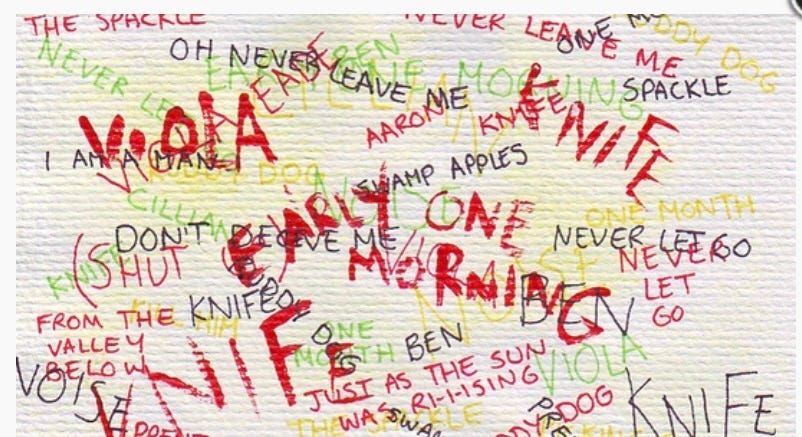 THE SPACKLE
NEVER LEAVE ME
ONE MO
DDY DOG
NEVER LE
OH NEVER LEAVE ME
BEN
EARLY ONE MORNING
SPACKLE
VIOLA
LEADER
AARON
KNIFE
KNIFE
I AM A MAN
DDY DOG
SWAMP APPLES
NOISE
CILLIAN
EARLY ONE
MORNING
ONE MONTH
DON'T DECEIVE ME
NEVER LET GO
(SHUT
KNIFE
NEVER
LET
GO
KILL HIM
KNIFE
BEN
FROM THE
VALLEY
BELOW
KNIFE
ONE
MONTH
BEN
VIOLA
VOISE
JUST AS THE SUN
WAS RI-I-ISING
KNIFE
THE SPACKLE
SWAM
DDY DOG
PRE
PPENT